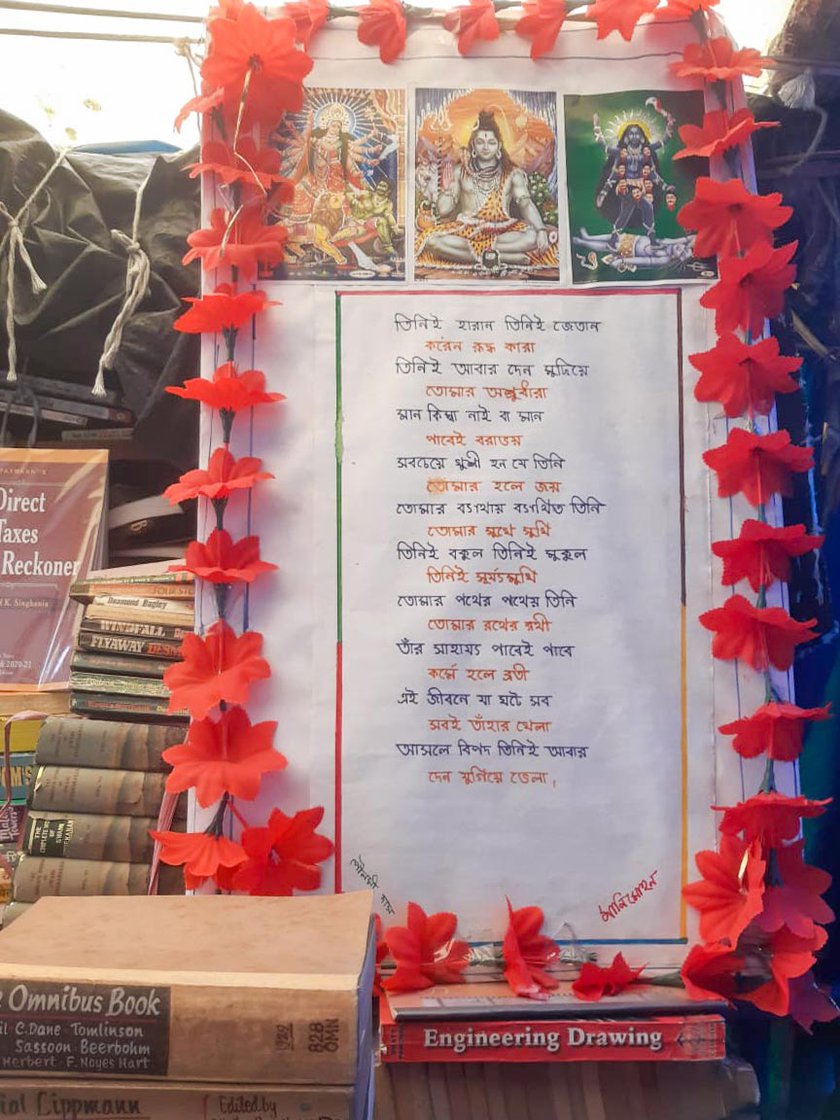 তিনিই হারান তিনিই জেতান
করেন রুদ্ধ কারা
তিনিই আবার দেন মুছিয়ে
তোমার অশ্রুধারা
মান কিম্বা নাই বা মান
পাবেই বরাভয়
সবচেয়ে খুশী হন যে তিনি
তোমার হলে জয়
তোমার ব্যাথায় ব্যাথিত তিনি
তোমার সুখে সুখি
তিনিই বকুল তিনিই মুকুল
তিনিই সূর্য্যমুখি
তোমার পথের পাথেয় তিনি
তোমার রথের রথী
তাঁর সাহায্য পাবেই পাবে
কর্মে হলে ব্রতী
এই জীবনে যা ঘটে সব
সবই তাঁহার খেলা
আসলে বিপদ তিনিই আবার
দেন যুগিয়ে ভেলা,
Direct
Taxes
Reckoner
K. Singhania
2020-21
Desmond Bagley
WINDFALL
FLYAWAY
Omnibus Book
C. Dane Tomlinson
Sassoon Beerbohm
Herbert F. Noyes Hart
828
OMN
Engineering Drawing
Lippmann
Edited by